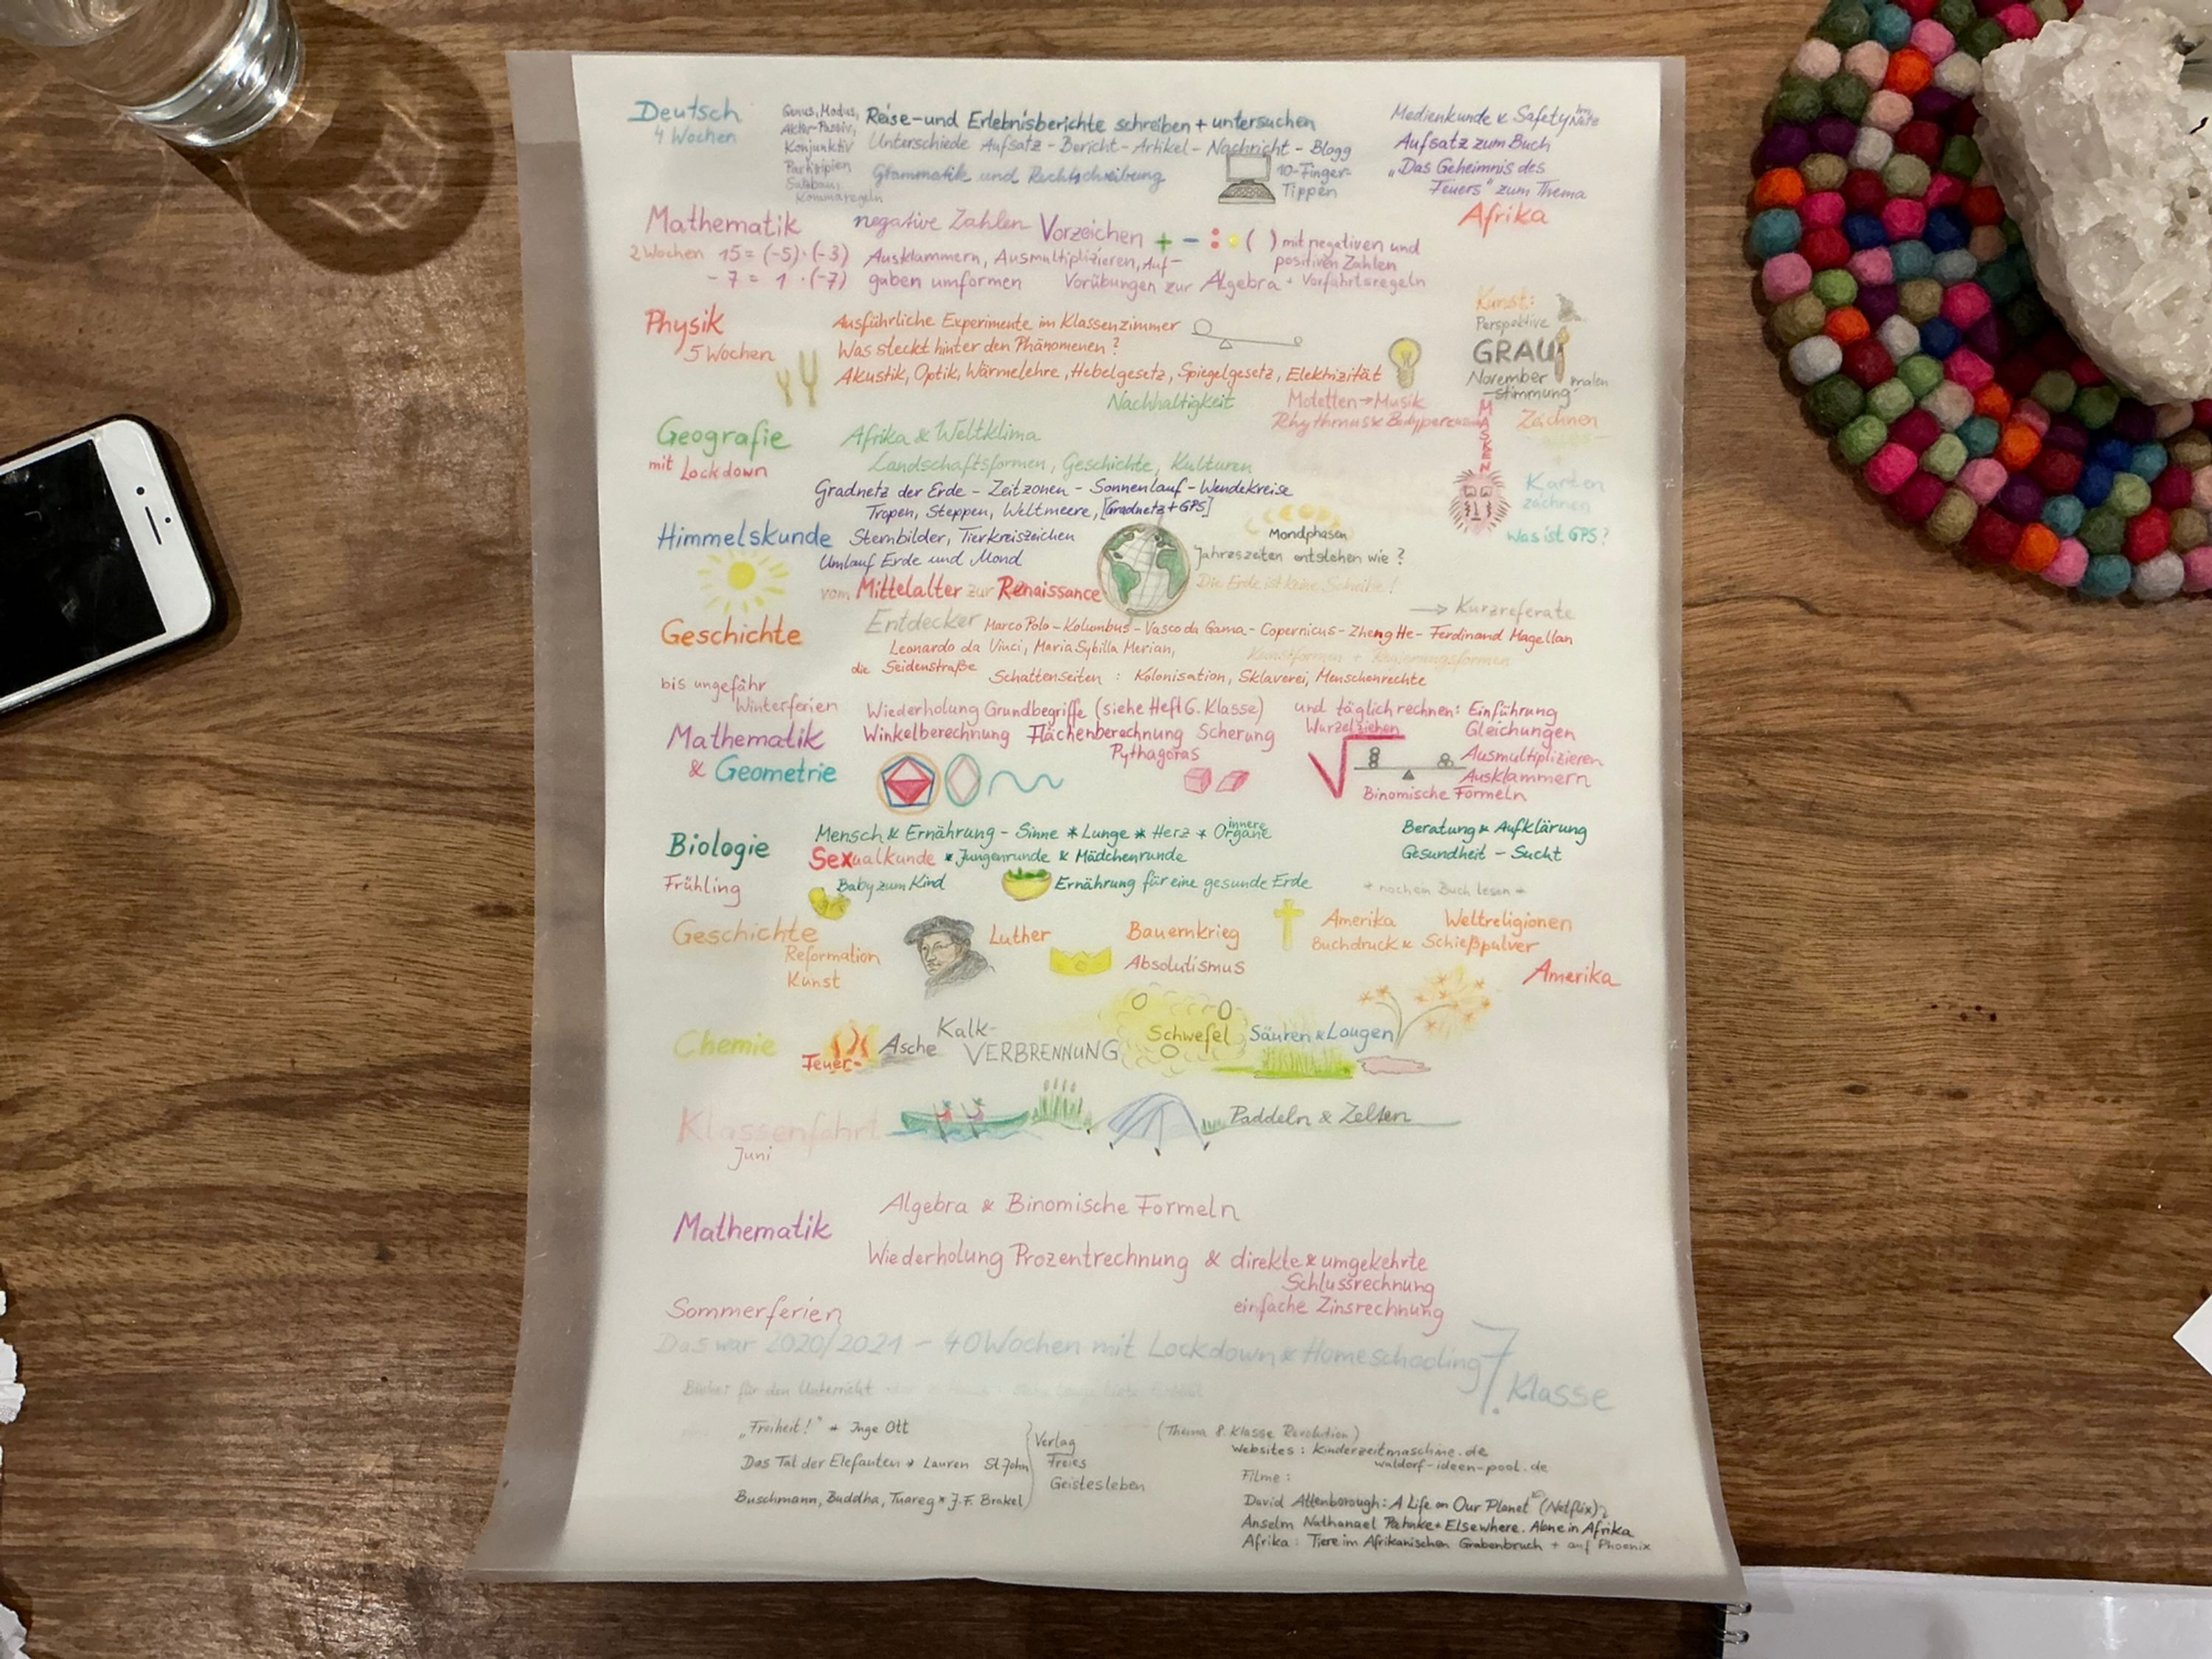 Deutsch
4 Wochen
Genus, Modus,
Aktiv-Passiv,
Konjunktiv
Partizipien
Satzbau,
Kommaregeln
Reise- und Erlebnisberichte schreiben + untersuchen
Unterschiede Aufsatz - Bericht - Artikel - Nachricht - Blogg
Grammatik und Rechtschreibung
10-Finger-
Tippen
Medienkunde & Safety im Netz
Aufsatz zum Buch
„Das Geheimnis des
Feuers" zum Thema
Afrika
Mathematik
2 Wochen
15 = (-5) · (-3)
- 7 = 1 · (-7)
negative Zahlen Vorzeichen + - : · ( ) mit negativen und
positiven Zahlen
Ausklammern, Ausmultiplizieren, Auf-
gaben umformen
Vorübungen zur Algebra + Vorfahrtsregeln
Physik
5 Wochen
Ausführliche Experimente im Klassenzimmer
Was steckt hinter den Phänomenen?
Akustik, Optik, Wärmelehre, Hebelgesetz, Spiegelgesetz, Elektrizität
Nachhaltigkeit
Motetten → Musik
Rhythmus & Bodypercussion
Kunst:
Perspektive
GRAU
November malen
-stimmung
MASKEN
Zeichnen
Karten
zeichnen
Was ist GPS?
Geografie
mit Lockdown
Afrika & Weltklima
Landschaftsformen, Geschichte, Kulturen
Gradnetz der Erde - Zeitzonen - Sonnenlauf - Wendekreise
Tropen, Steppen, Weltmeere, [Gradnetz + GPS]
Himmelskunde
Sternbilder, Tierkreiszeichen
Umlauf Erde und Mond
Mondphasen
Jahreszeiten entstehen wie?
Die Erde ist keine Scheibe!
vom Mittelalter zur Renaissance
→ Kurzreferate
Geschichte
bis ungefähr
Winterferien
Entdecker Marco Polo - Kolumbus - Vasco da Gama - Copernicus - Zheng He - Ferdinand Magellan
Leonardo da Vinci, Maria Sybilla Merian,
Kunstformen + Regierungsformen
die Seidenstraße
Schattenseiten : Kolonisation, Sklaverei, Menschenrechte
Mathematik
& Geometrie
Wiederholung Grundbegriffe (siehe Heft 6. Klasse)
Winkelberechnung Flächenberechnung Scherung
Pythagoras
und täglich rechnen: Einführung
Wurzelziehen
Gleichungen
Ausmultiplizieren
Ausklammern
Binomische Formeln
Biologie
Frühling
Mensch & Ernährung - Sinne * Lunge * Herz * innere Organe
Sexualkunde * Jungenrunde & Mädchenrunde
Baby zum Kind
Ernährung für eine gesunde Erde
Beratung & Aufklärung
Gesundheit - Sucht
+ noch ein Buch lesen +
Geschichte
Reformation
Kunst
Luther
Bauernkrieg
Absolutismus
Amerika Weltreligionen
Buchdruck & Schießpulver
Amerika
Chemie
Feuer-
Asche
Kalk-
VERBRENNUNG
Schwefel
Säuren & Laugen
Klassenfahrt
Juni
Paddeln & Zelten
Mathematik
Algebra & Binomische Formeln
Wiederholung Prozentrechnung & direkte & umgekehrte
Schlussrechnung
einfache Zinsrechnung
Sommerferien
Das war 2020/2021 - 40 Wochen mit Lockdown & Homeschooling 7. Klasse
Bücher für den Unterricht
„Freiheit!" * Inge Ott
Das Tal der Elefanten * Lauren St John
Buschmann, Buddha, Tuareg * J.F. Brakel
Verlag
Freies
Geistesleben
(Thema 8. Klasse Revolution)
Websites: kinderzeitmaschine.de
waldorf-ideen-pool.de
Filme:
David Attenborough: A Life on Our Planet (Netflix)
Anselm Nathanael Pahnke * Elsewhere. Alone in Afrika
Afrika: Tiere im Afrikanischen Grabenbruch + auf Phoenix